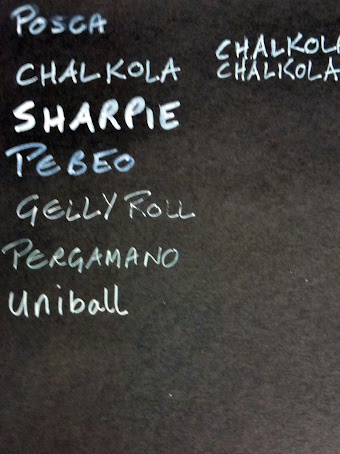 POSCA
CHALKOLA
CHALKOLA
CHALKOLA
SHARPIE
PEBEO
GELLY ROLL
PERGAMANO
uniball